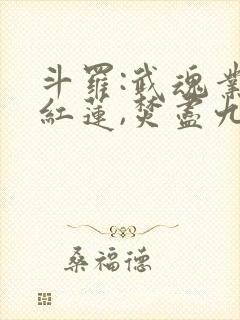 斗羅:武魂業
紅蓮,焚盡九
桑福德